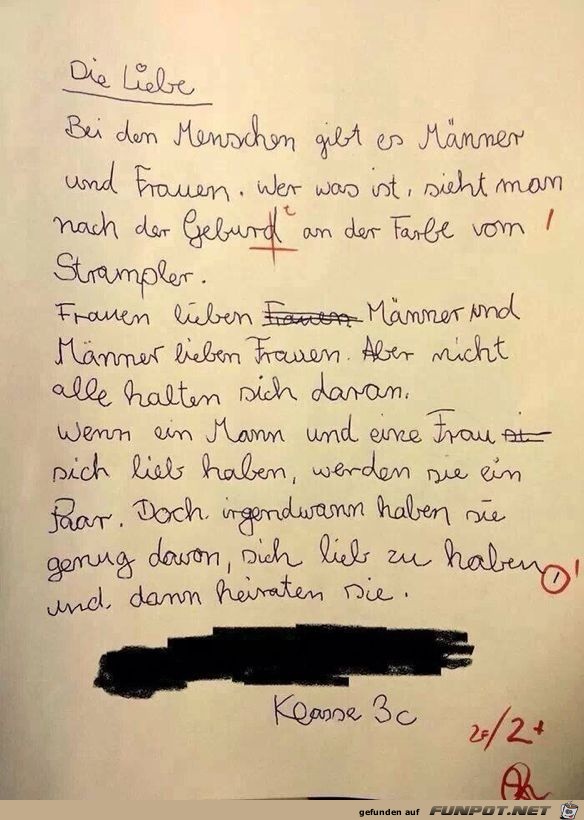 Die Liebe
Bei den Menschen gibt es Männer
und Frauen. Wer was ist, sieht man
nach der Geburd t an der Farbe vom
Strampler.
Frauen lieben Frauen Männer und
Männer lieben Frauen. Aber nicht
alle halten sich daran.
Wenn ein Mann und eine Frau si
sich lieb haben, werden sie ein
Paar. Doch irgendwann haben sie
genug davon, sich lieb zu haben,
und dann heiraten sie.
Klasse 3c
2+
gefunden auf FUNPOT.NET